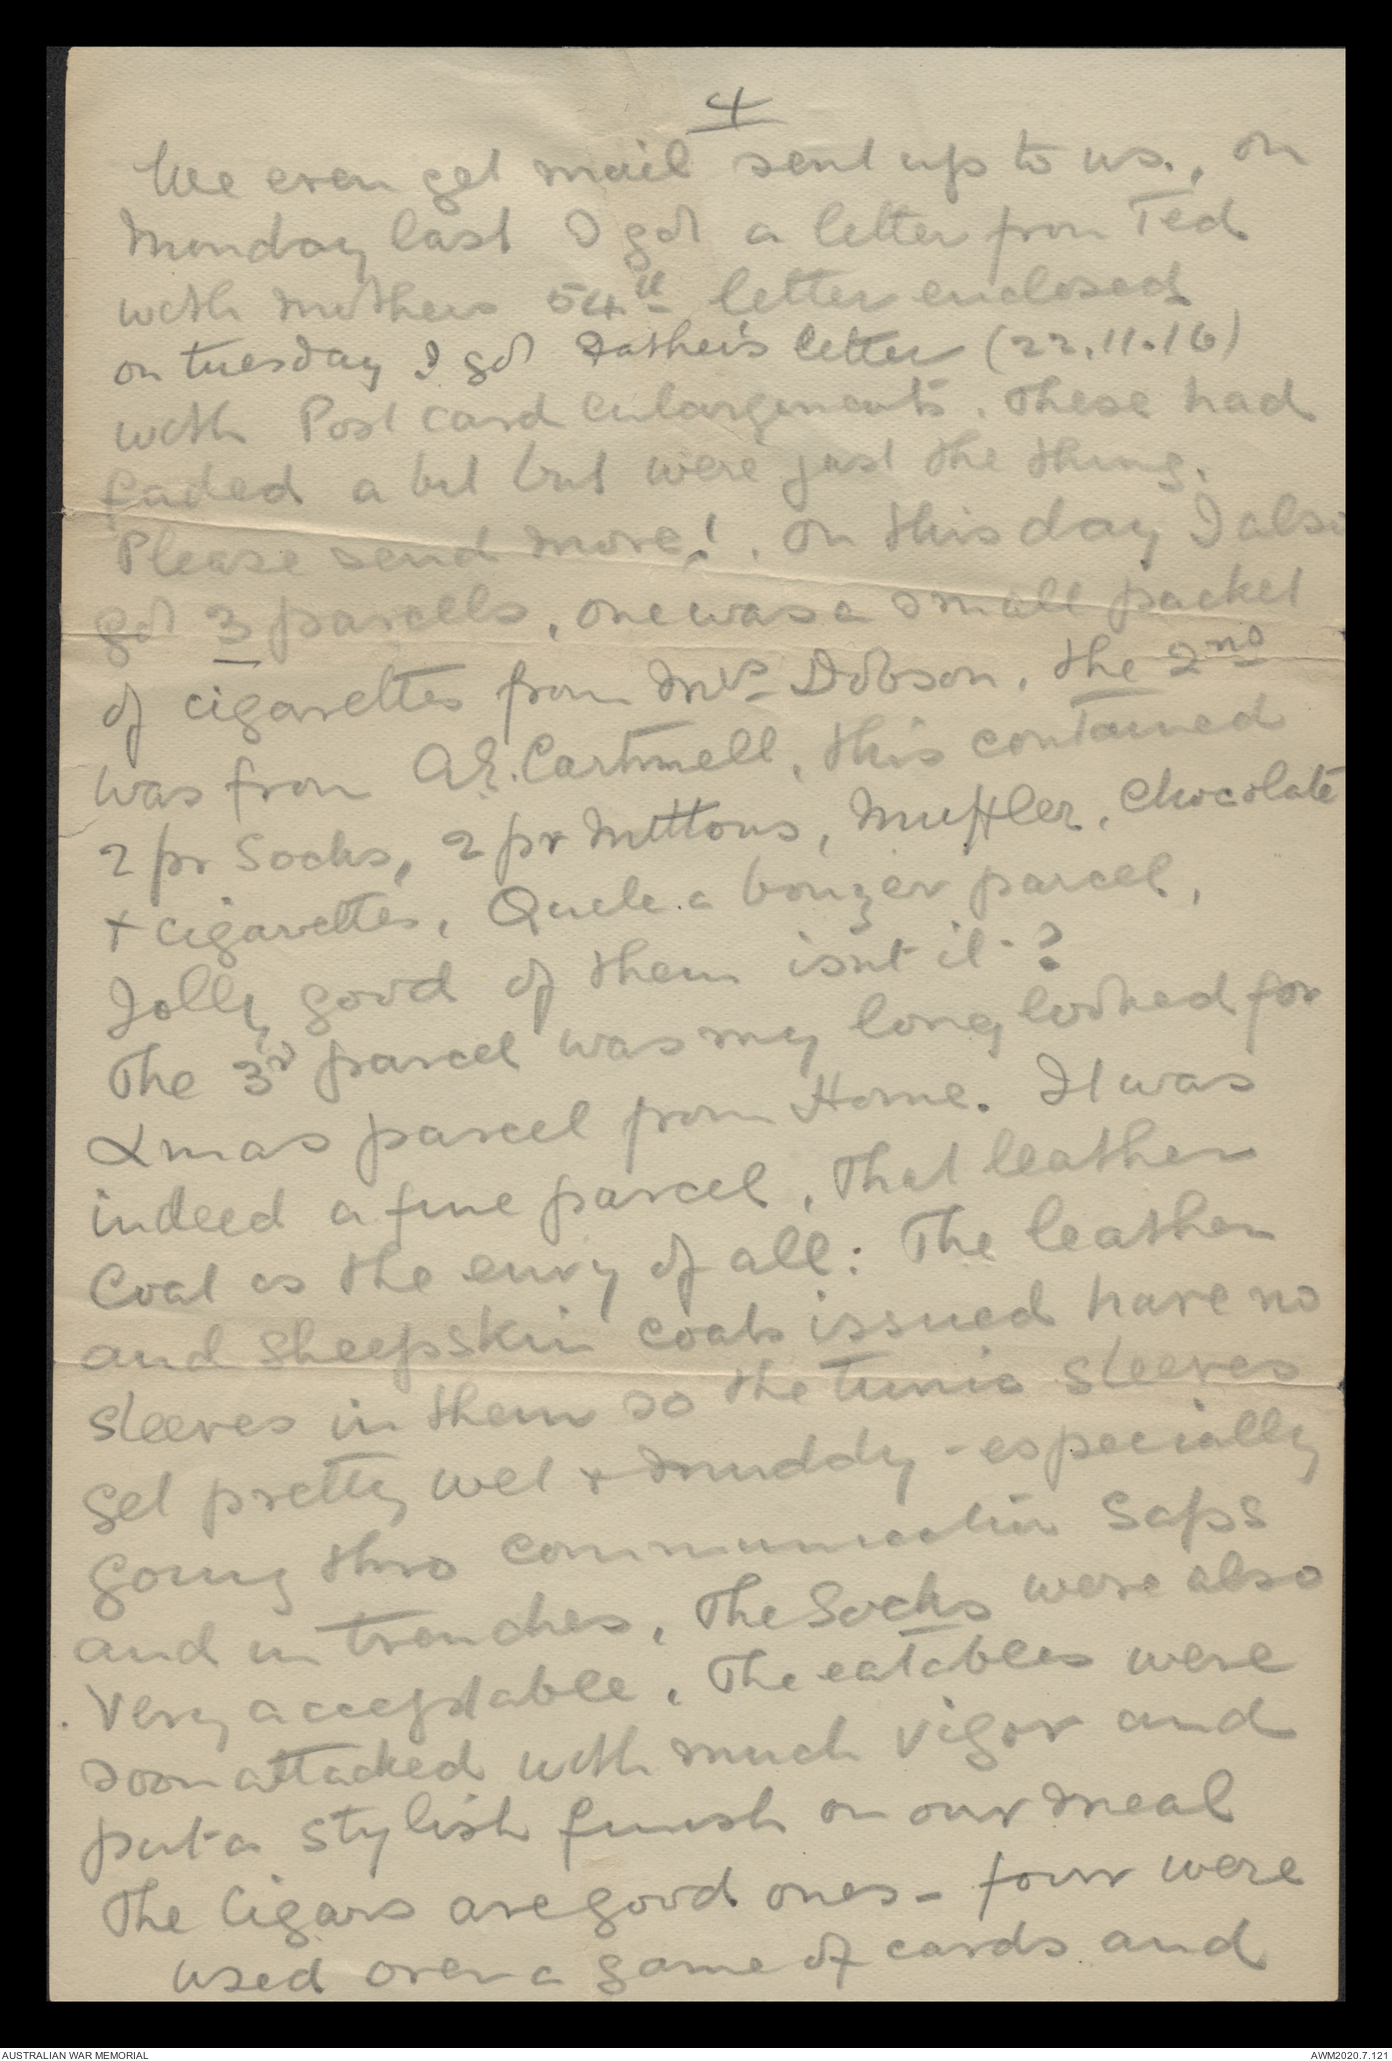 4
We even get mail sent up to us., on
Monday last I got a letter from Ted
with mothers 54th letter enclosed
on tuesday I got Father's letter (22.11.16)
with Post card enlargements. These had
faded a bit but were just the thing.
Please send more!. On this day I also
got 3 parcells, one was a small packet
of cigarettes from Mrs Dobson, the 2nd
was from A.E. Cartmell, this contained
2 pr Socks, 2 pr Mittons, Muffler, Chocolate
+ cigarettes, Quite a bonzer parcel,
Jolly good of them isnt it?
The 3rd parcel was my long looked for
Xmas parcel from Home. It was
indeed a fine parcel, That leather
Coat is the envy of all: The leather
and sheepskin coats issued have no
sleeves in them so the tunic sleeves
get pretty wet + muddy - especially
going thro communication saps
and in trenches. The Socks were also
very acceptable. The eatables were
soon attacked with much vigor and
put a stylish finish on our meal
The Cigars are good ones - four were
used over a game of cards and
AUSTRALIAN WAR MEMORIAL
AWM2020.7.121